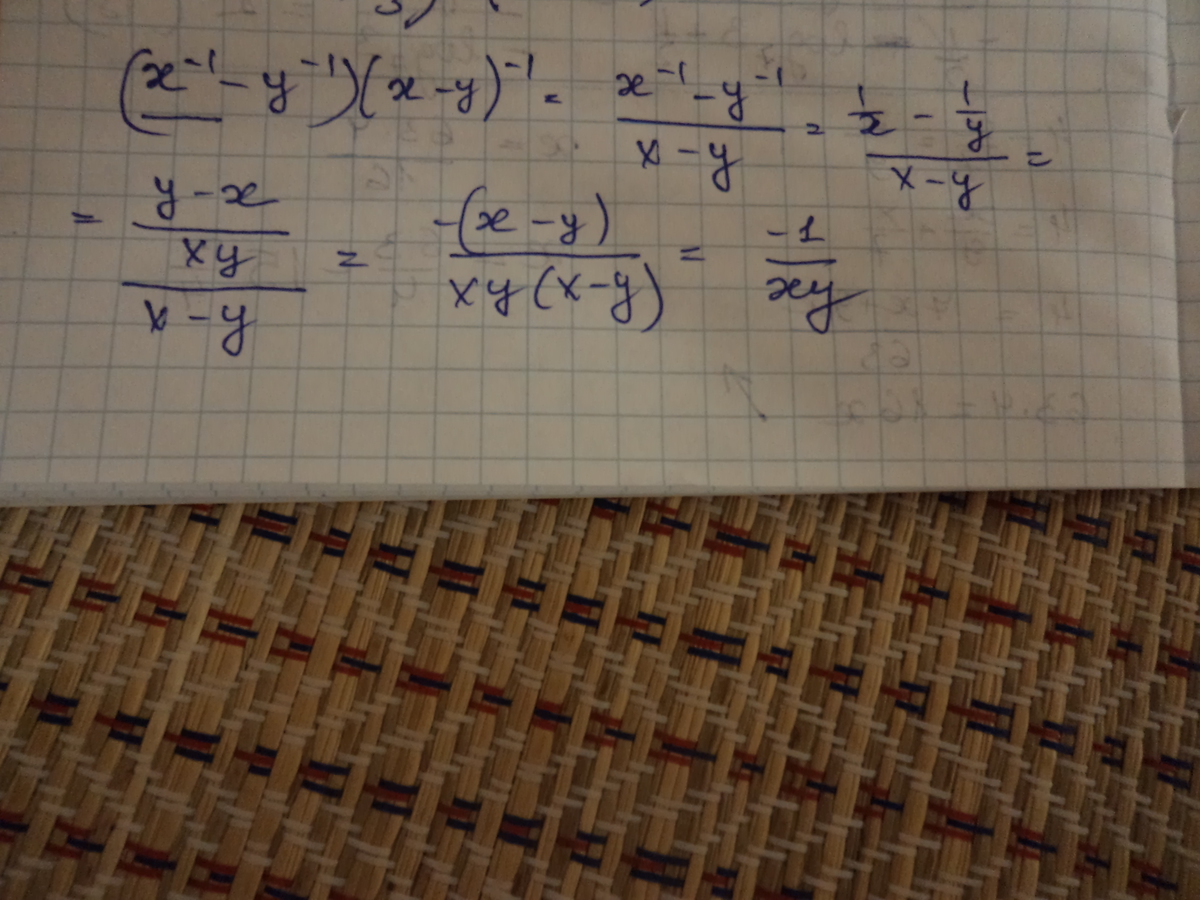 (x⁻¹ - y⁻¹)(x - y)⁻¹ = (x⁻¹ - y⁻¹)/(x - y) = (1/x - 1/y)/(x - y) =
= ((y - x)/(xy))/(x - y) = -(x - y)/(xy(x - y)) = -1/(xy)